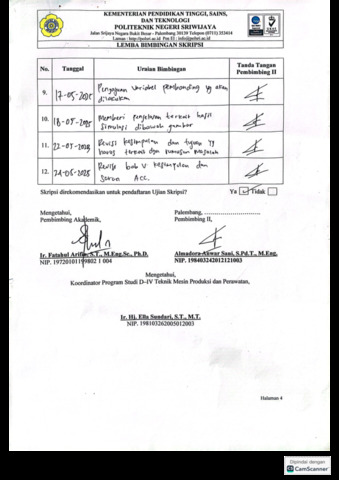 KEMENTERIAN PENDIDIKAN TINGGI, SAINS,
DAN TEKNOLOGI
POLITEKNIK NEGERI SRIWIJAYA
Jalan Srijaya Negara Bukit Besar - Palembang 30139 Telepon (0711) 353414
Laman : http://polsri.ac.id Pos El : info@polsri.ac.id
LEMBA BIMBINGAN SKRIPSI
No. Tanggal Uraian Bimbingan Tanda Tangan
Pembimbing II
9. 17-05-2025 Pengajuan variabel pembanding yg akan
dilakukan
10. 18-05-2025 Memberi penjelasan terkait hasil
simulasi dibawah gambar
11. 22-05-2025 Revisi kesimpulan dan tujuan yg
harus dan rumusan masalah
12. 28-05-2025 Revisi bab V kesimpulan dan
saran Acc.
Skripsi direkomendasikan untuk pendaftaran Ujian Skripsi? Ya Tidak
Mengetahui, Palembang, ........................
Pembimbing Akademik, Pembimbing II,
Ir. Fatahul Arifin, S.T., M.Eng.Sc., Ph.D. Almadora Anwar Sani, S.Pd.T., M.Eng.
NIP. 19720101199802 1 004 NIP. 198403242012121003
Mengetahui,
Koordinator Program Studi D-IV Teknik Mesin Produksi dan Perawatan,
Ir. Hj. Ella Sundari, S.T., M.T.
NIP. 198103262005012003
Halaman 4
Dipindai dengan
CamScanner